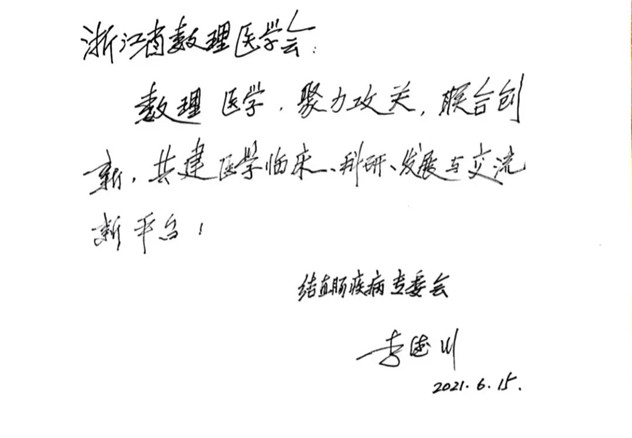 浙江省数理医学会:
数理医学,聚力攻关,联合创
新,共建医学临床、科研、发展与交流
新平台!
结直肠疾病专委会
李德川
2021.6.15.